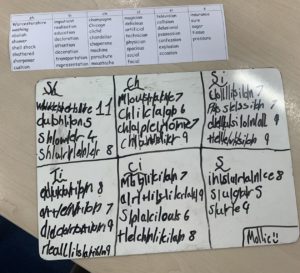 sh important ch ci si s
Worcestershire realisation champagne magician television insurance
washing education Chicago delicious collision sure
slush cliché artificial delusional sugar
shower attention chandelier technician possession tissue
shell shock decoration chaperone physician confession pressure
shattered machine spacious explosion
sharpener transportation parachute social occasion
cushion representation moustache facial
Sh Ch Si
11 moustache 7 collision 7
cushion 5 Chicago 6 Possession 7
shower 4 chaperone 7 delusional 9
8 9 television 9
Ti Ci S
education 8 magician 7 insurance 8
attention 7 artificial 9 sugar 5
9 spacious 6 sure 4
realisation 9 technician 8 Mollie